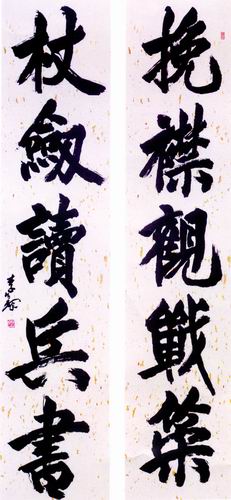 挽襟觀戰策
杖劍讀兵書